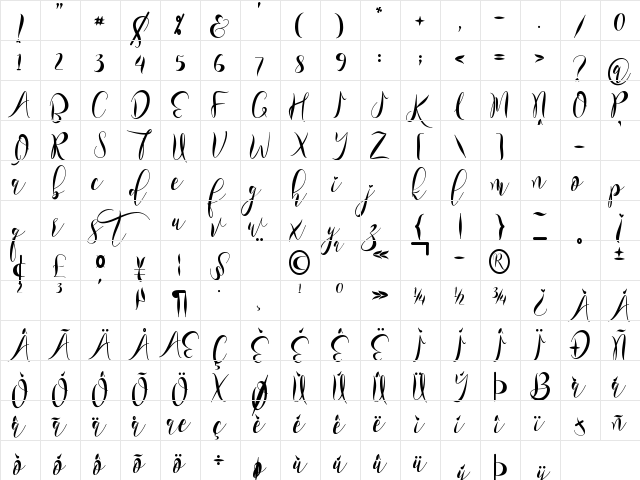 ! " # $ % & ' ( ) * + , - . / 0
1 2 3 4 5 6 7 8 9 : ; < = > ? @
A B C D E F G H I J K L M N O P
Q R S T U V W X Y Z [ \ ] -
a b c d e f g h i j k l m n o p
q r s t u v w x y z { | } ~ ¡
¢ £ ¤ ¥ ¦ § ¨ © ª « ¬ - ® ¯ ° ±
² ³ ´ µ ¶ · ¸ ¹ º » ¼ ½ ¾ ¿ À Á
Â Ã Ä Å Æ Ç È É Ê Ë Ì Í Î Ï Ð Ñ
Ò Ó Ô Õ Ö × Ø Ù Ú Û Ü Ý Þ ß à á
â ã ä å æ ç è é ê ë ì í î ï ð ñ
ò ó ô õ ö ÷ ø ù ú û ü ý Þ ÿ